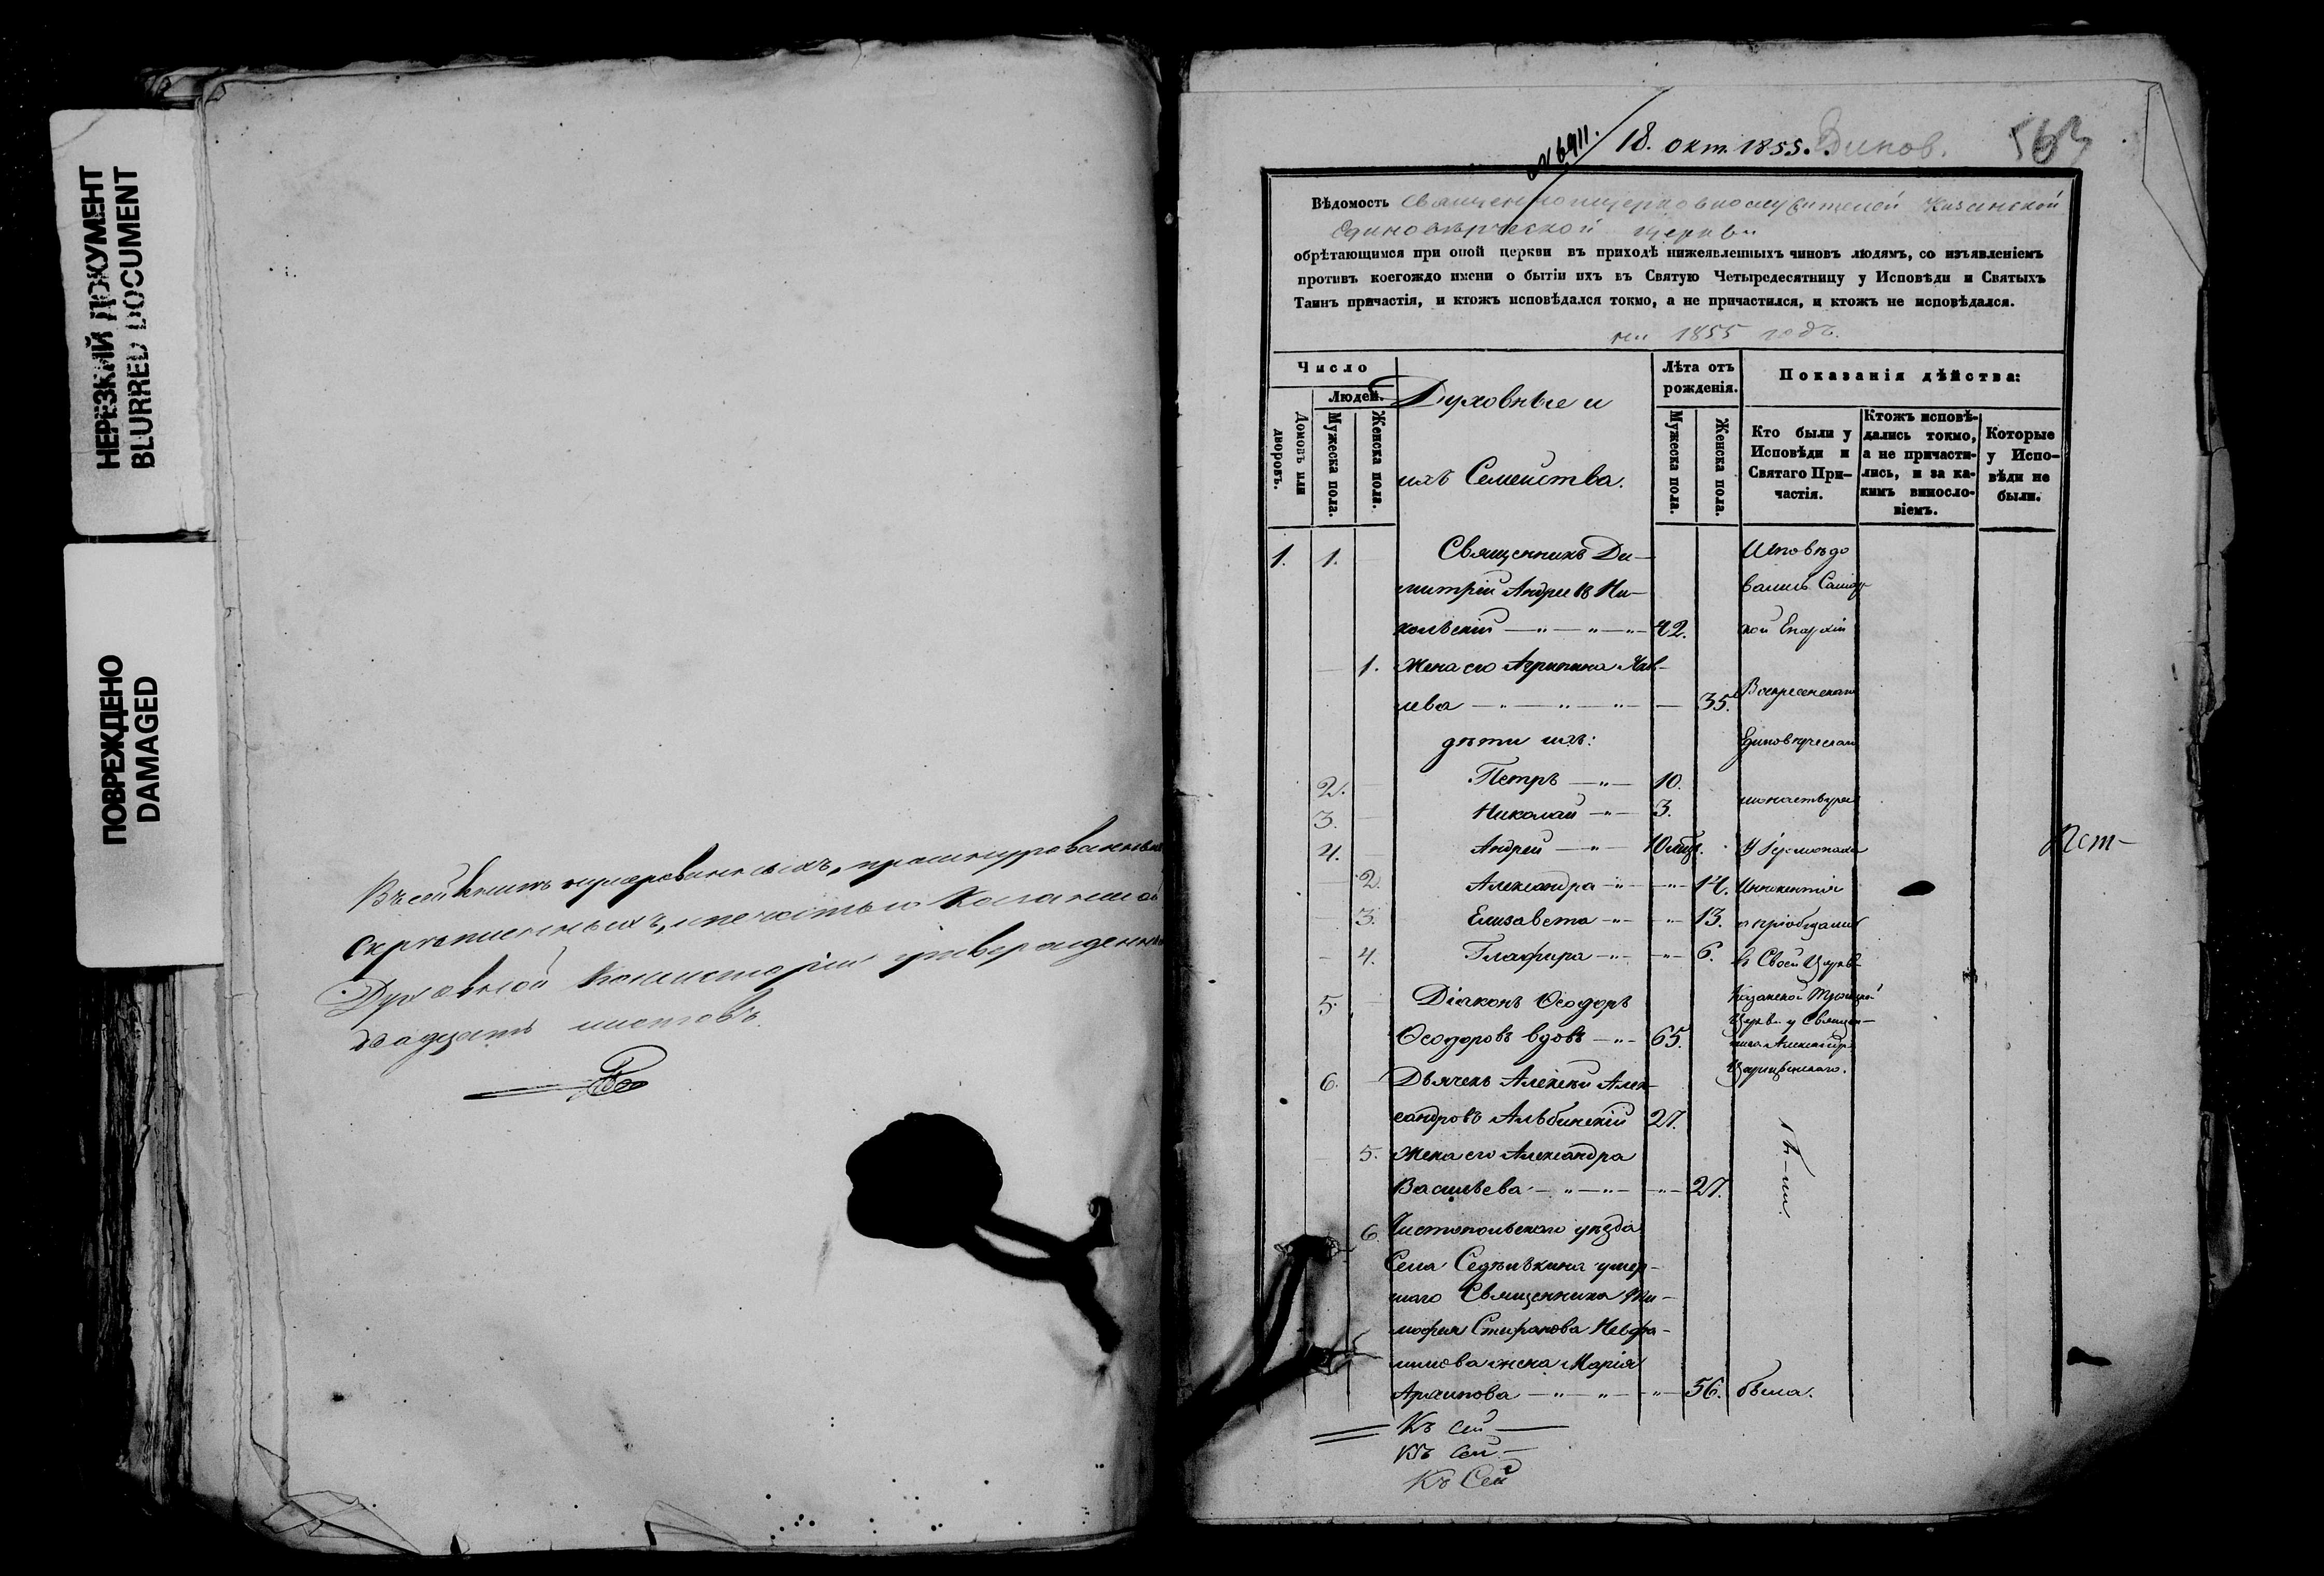 НЕРЕЗКИЙ ДОКУМЕНТ
BLURRED DOCUMENT
ПОВРЕЖДЕНО
DAMAGED
Въ сей книгѣ нумерованныхъ, прошнурованныхъ
скрѣпленныхъ, и печатью Казанской
Духовной Консисторіи утвержденныхъ
двадцать листовъ.
№ 6911. / 18. окт. 1855. Единов. 563
Вѣдомость священноцерковнослужителей Казанской
Единовѣрческой церкви
обрѣтающимся при оной церкви въ приходѣ нижеявленныхъ чиновъ людямъ, со изъявленіемъ
противъ коегождо имени о бытіи ихъ въ Святую Четыредесятницу у Исповѣди и Святыхъ
Таинъ причастія, и ктожъ исповѣдался токмо, а не причастился, и ктожъ не исповѣдался.
на 1855 годъ.
Число
Людей.
Домовъ или дворовъ.
Мужеска пола.
Женска пола.
Духовные и
ихъ Семейства.
Лѣта отъ рожденія.
Мужеска пола.
Женска пола.
Показанія дѣйства:
Кто были у Исповѣди и Святаго При-
частія.
Ктожъ исповѣ-
дались токмо,
а не причасти-
лись, и за ка-
кимъ винносло-
віемъ.
Которые
у Испо-
вѣди не
были.
1. 1. Священникъ Ди- Исповѣдо
митрій Андреевъ Ни- вались
кольскій — " — " — " 42. кой Епархіи
1. Жена его Агрипина Яков-
лева — " — " — " — 35. Воскресенскаго
дѣти ихъ: Единовѣрческаго
2. Петръ — " — 10.
3. Николай — " — 3. монастыря
4. Андрей — " — 10 мѣс. у Іеромонаха
2. Александра — " — " — 14. Иннокентія
3. Елизавета — " — " — 13. а пріобщались
4. Глафира — " — " — 6. въ Своей Церкви
5. Діаконъ Ѳеодоръ Казанской Троицкой
Церкви у Священ-
Ѳеодоровъ вдовъ — " — 65. ника Александра
6. Дьячекъ Алексѣй Алек- Царицынскаго.
сандровъ Альбинскій 27.
5. Жена его Александра
Васильева — " — " — " — 27.
6. Чистопольскаго уѣзда
Села Седѣлькина умер-
шаго Священника Ти-
мофея Стефанова Невфа-
лимова жена Марія
Архипова — " — " — " — 56. была.
Къ сей —
Къ сей —
Къ Сей